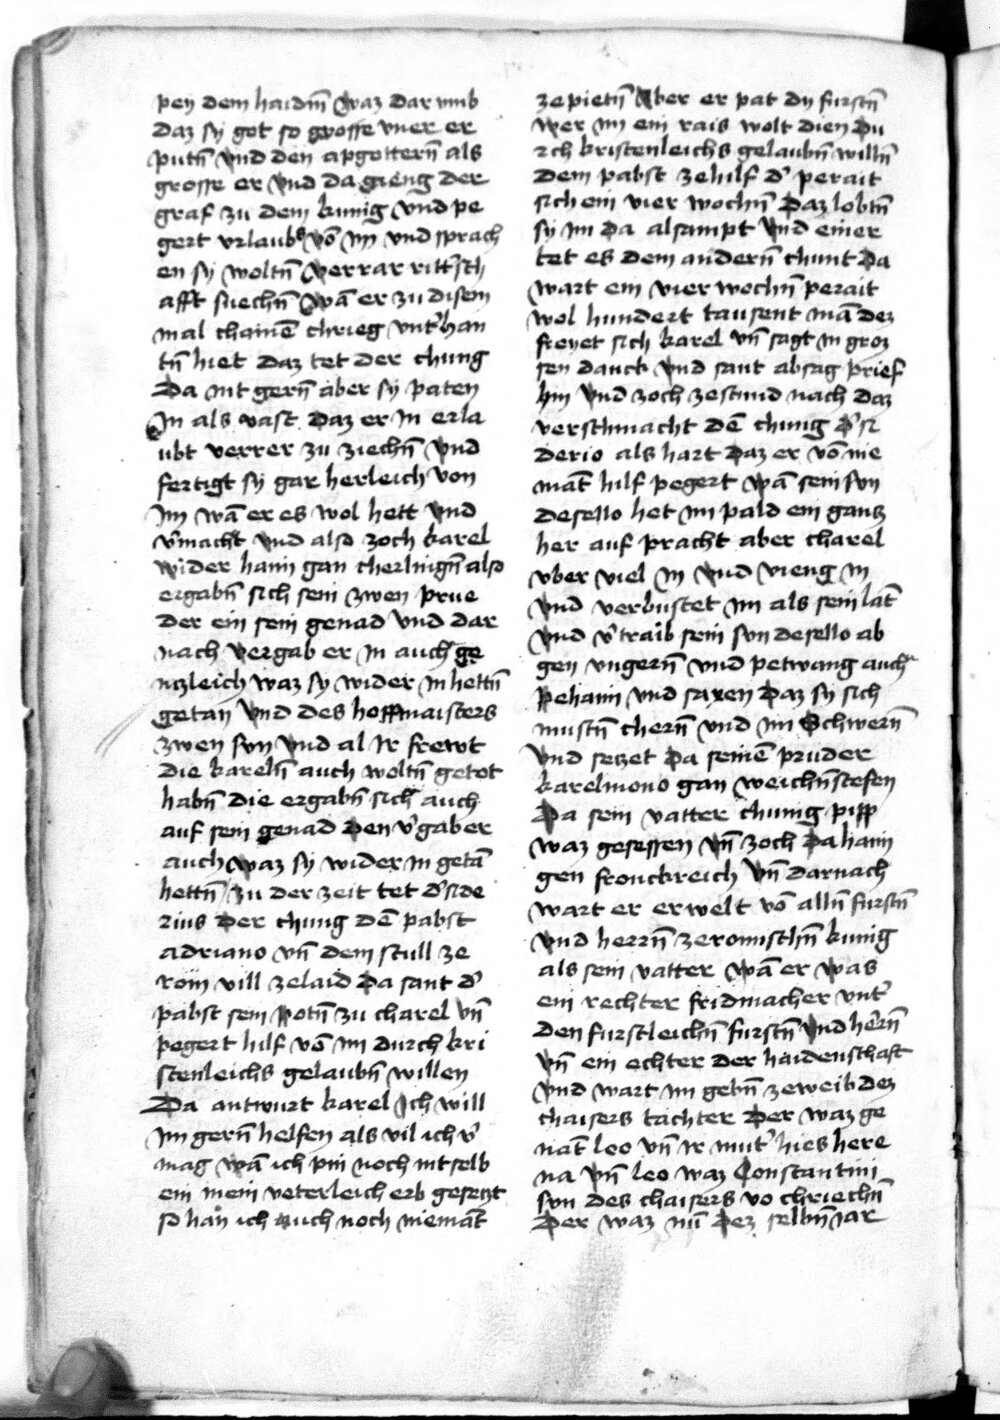 pey dem haidnˉ waz dar vmb
daz sy got so grosse vner er
putnˉ vnd den apgotternˉ als
grosse er vnd da gieng der
graf zu dem kunig vnd pe
gert vrlaubs võ im vnd sprach
en sy woltnˉ verrar rittˀsch
afft suechnˉ wã er zu disem
mal chainẽ chrieg vntˀhan
tnˉ hiet daz tet der chung
Da nit gernˉ aber sy paten
In als vast daz er in erla
ubt verrer zu ziechnˉ vnd
fertigt sy gar herleich von
im wã er es wol hett vnd
vˀmacht vnd also zoch karel
wider haim gan cherlingnˉ also
ergabnˉ sich sein zwen prue
der ein sein genad vnd dar
nach vergab er in auch ge
nczleich waz sy wider in hettnˉ
getan vnd des hoffmaisters
zwen sun vnd al ir frewt
die karelnˉ auch woltnˉ getot
habnˉ die ergabnˉ sich auch
auf sein genad den vˀgab er
auch waz sy wider in getã
hettnˉ zu der zeit tet dˀside
rius der chung dẽ pabst
adriano vnˉ dem stull ze
rom vill zelaid da sant dˀ
pabst sein potnˉ zu charel vnˉ
pegert hilf võ im durch kri
stenleichs gelaubnˉ willen
Da antwurt karel Ich will
im gernˉ helfen als vil ich vˀ
mag wã ich pin noch nit selb
ein mein veterleich erb gesetzt
so han ich auch noch niemãt
zepietnˉ Aber er pat dy furstnˉ
wer im ein rais wolt dien du
rch kristenleichs gelaubnˉ willnˉ
dem pabst zehilf dˀ perait
sich ein vier wochnˉ daz lobtnˉ
sy im da alsampt vnd einer
tet es dem andernˉ chunt da
wart ein vier wochnˉ perait
wol hundert tausent mã dez
freyet sich karel vnˉ sagt in groz
sen danck vnd sant absag prief
hin vnd zoch zestund nach daz
verschmacht dẽ chunig dˀsi
derio als hart daz er võ nie
mãt hilf pegert wã sein sun
desello het im pald ein gancz
her auf pracht aber charel
vber viel in vnd vieng in
vnd verbustet im als sein lãt
vnd vˀtraib sein sun desello ab
gen vngernˉ vnd petwang auch
pehaim vnd saxen daz sy sich
mustnˉ chernˉ vnd im Schwernˉ
vnd seczet da seinẽ pruder
karelmono gan weichnˉstefen
Da sein vatter chunig pipp
waz gesessen vnˉ zoch da haim
gen franckreich vnˉ darnach
wart er erwelt võ allnˉ furstnˉ
vnd herrnˉ ze romischnˉ kunig
als sein vatter wã er was
ein rechter fridmacher vntˀ
den furstleichnˉ furstnˉ vnd hernˉ
vnˉ ein echter der haidenschaft
vnd wart im gebnˉ ze weib dez
chaisers tachter der waz ge
nãt leo vnˉ ir mutˀ hies here
na vnˉ leo waz Constantini
sun des chaisers vo chriechnˉ
Der waz nũ dez selbnˉ iar